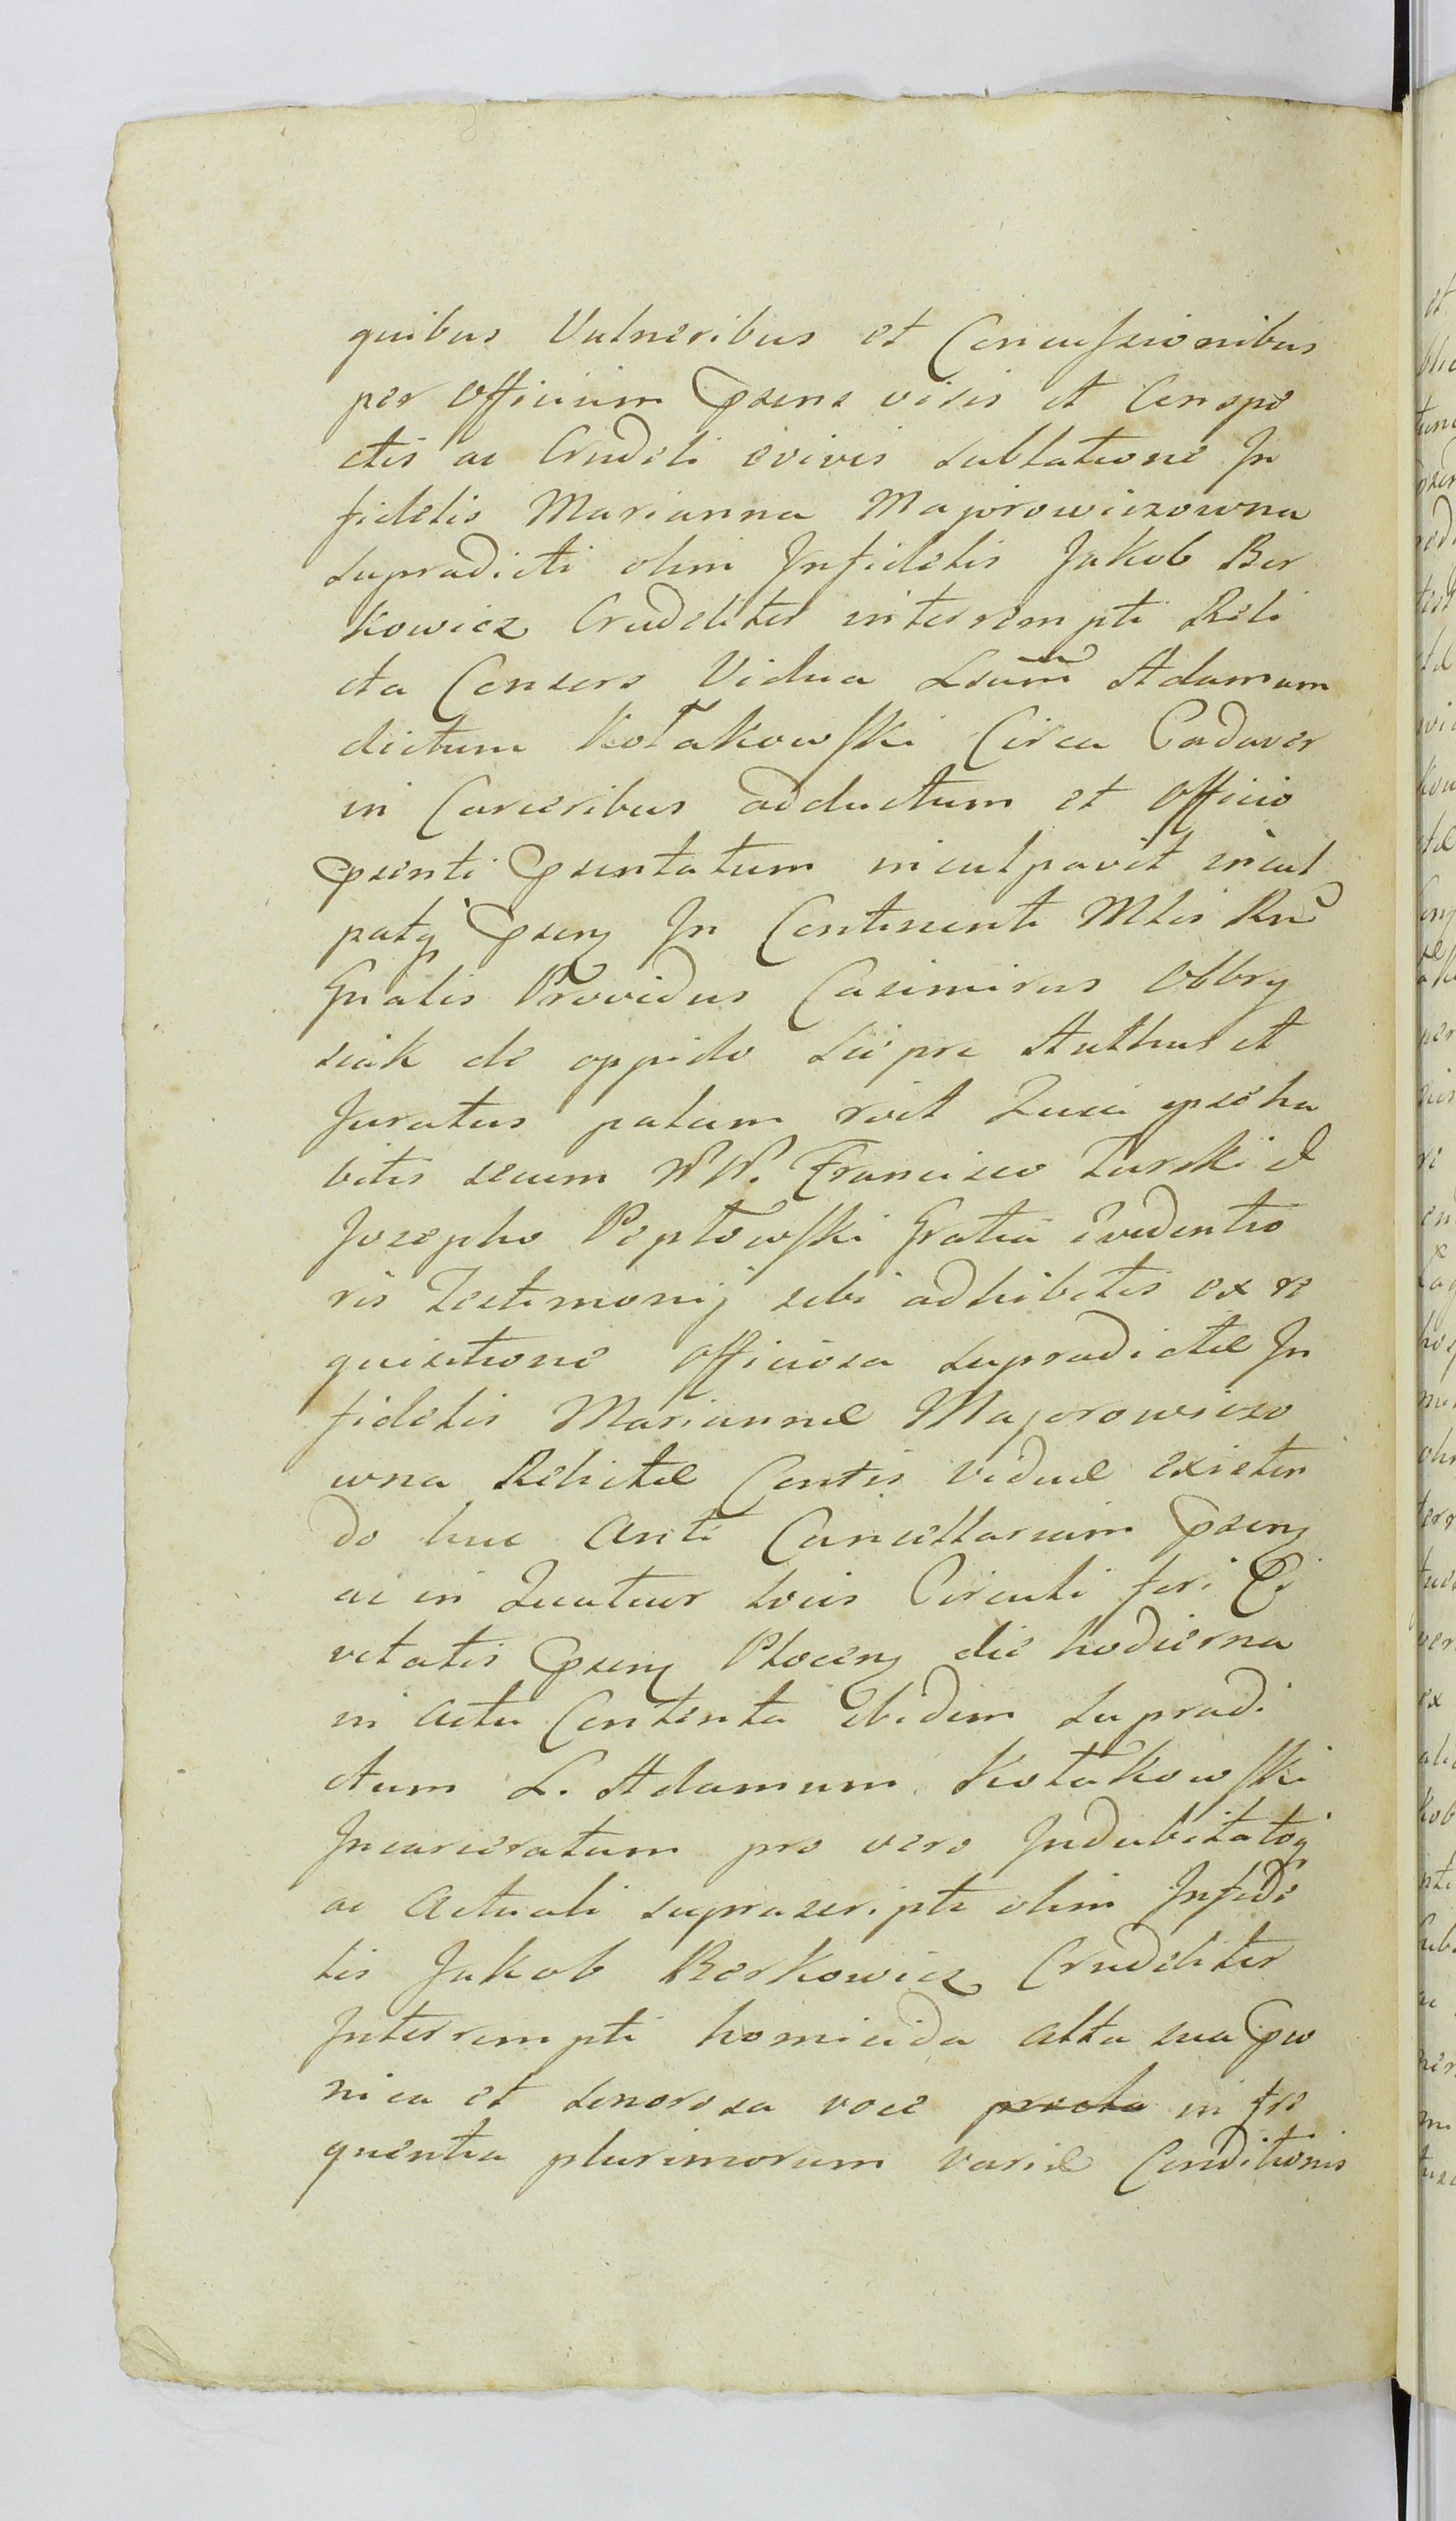 quibus Vulneribus et Concussionibus
per Officium Psens visis et Conspe
ctis ac Crudeli evivis sublatione In
fidelis Marianna Majorowiczowna
supradicti olim Infidelis Jakob Ber
kowicz Crudeliter interrempti Reli
cta Consors Vidua Lsum Adamum
dictum Kołakowski Circa Cadaver
in Carceribus adductum et Officio
Psenti Psentatum inculpavit incul
patq Psens In Continenti Mlis Rni
Gnalis Providus Casimirus Obbry
siak de oppido Sierpc Authus et
Juratus palam rvit Quia ipse ha
bitis secum WW. Francisco Turski et
Josepho Peptowski Gratia evidentio
ris Testimonij sibi adhibitis ex re
quisitione Officiosa supradictæ In
fidelis Mariannæ Majorowiczo
wna Relictæ Contis viduæ existen
do huc Ante Cancellariam Psens
ac in Quatuor locis Circuli fori Ci
vitatis Psens Plocens die hodierna
in actu Contenta ibidem supradi
ctum L. Adamum Kołakowski
Incarceratum pro vero Indubitatoq
ac Actuali suprascripti olim Infide
lis Jakob Berkowicz Crudeliter
Interrempti homicida alta sua
nica et sonorosa voce in fre
quentia plurimorum variæ Conditionis